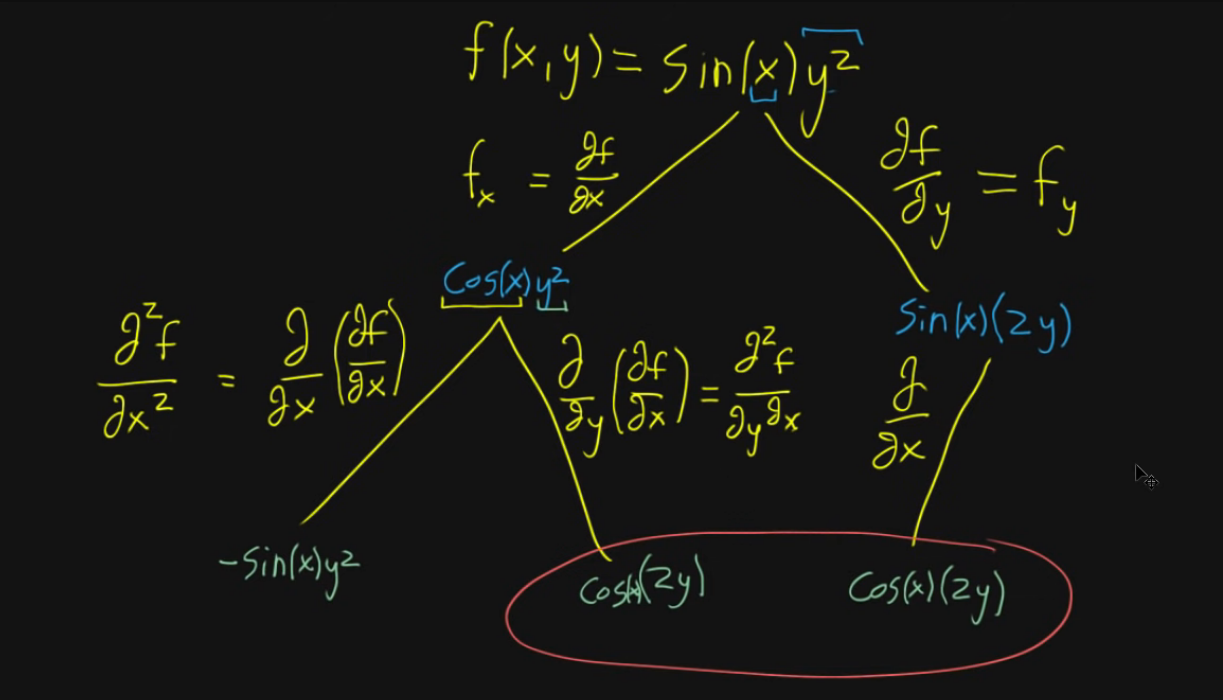 f(x,y) = Sin(x)y²
fₓ = ∂f/∂x
∂f/∂y = f_y
Cos(x)y²
Sin(x)(2y)
∂²f/∂x² = ∂/∂x(∂f/∂x)
∂/∂y(∂f/∂x) = ∂²f/∂y∂x
∂/∂x
-Sin(x)y²
Cos(x)(2y)
Cos(x)(2y)